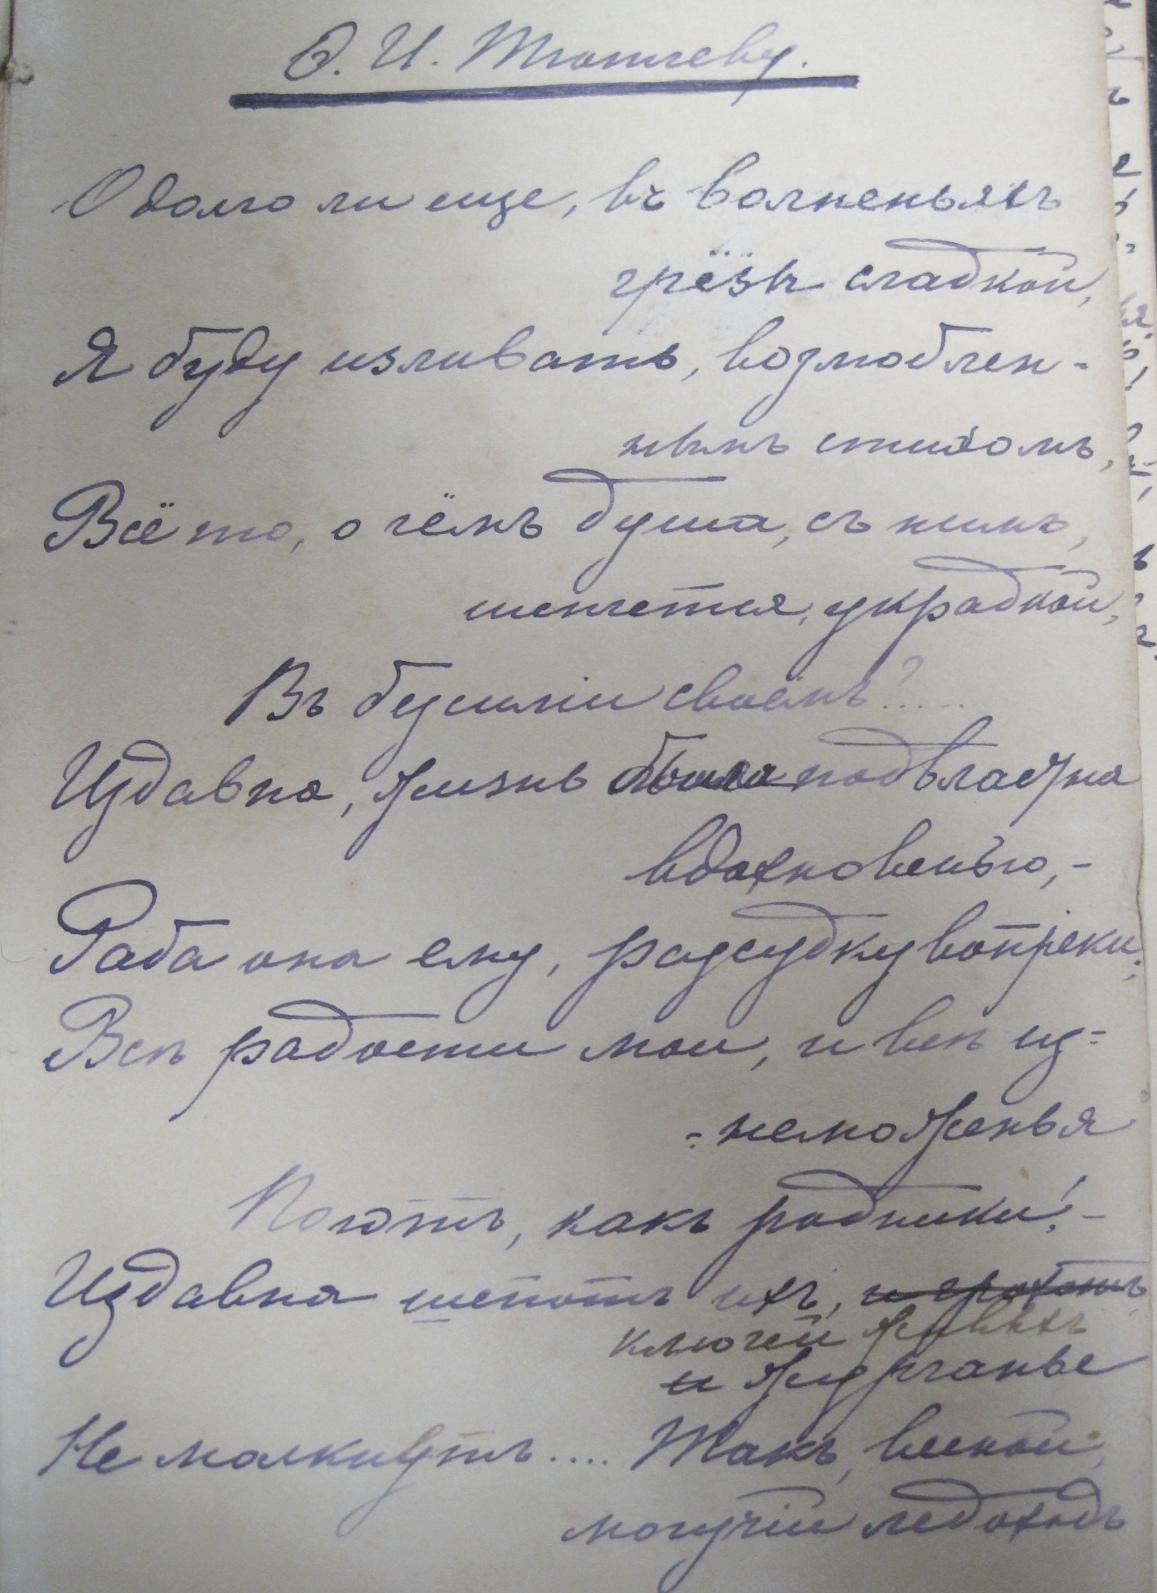 Ѳ. И. Тютчеву.
О долго ли еще, въ волненьяхъ
грёзы сладкой,
Я буду изливать, возлюблен-
нымъ стихомъ,
Всё то, о чёмъ душа, съ нимъ,
шепчется, украдкой,
Въ безсиліи своёмъ?.....
Издавна, жизнь была подвластна
вдохновенью, -
Раба она ему, разсудку вопреки;
Всѣ радости мои, и всѣ из-
-неможенья
Поютъ, какъ родники! -
Издавна шепотъ ихъ, и грохотъ
ключей живыхъ
и журчанье
Не молкнутъ.... Такъ, весной,
могучій ледоходъ